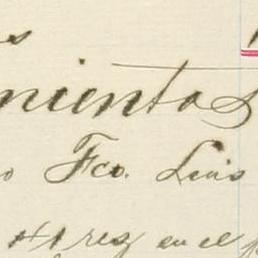 s
nientos
o Fco. Luis
rez en el